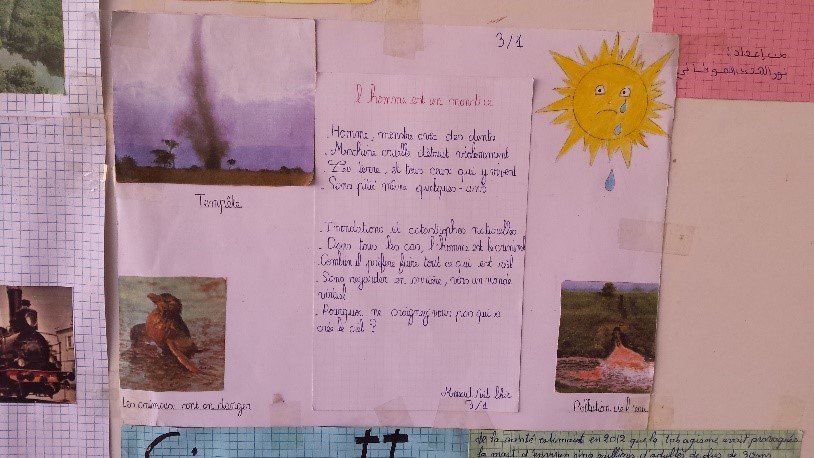 3/1
l'homme est un monstre
Homme, monstre avec des dents
Machine cruelle détruit violemment
La terre, et tous ceux qui y vivent
Sans pitié même quelques-uns
Inondations et catastrophes naturelles
Dans tous les cas, l'homme est le criminel
Combien il préfère faire tout ce qui est vil
Sans regarder en arrière, vers un monde
Pourquoi ne craignez vous pas qui a
créé le ciel ?
3/1
Tempête
Les animaux sont en danger
Pollution de l'eau
من إعداد:
de la santé estimaient en 2012 que le tabagisme avait provoqué
la mort d'environ cinq millions d'adultes de plus de 30 ans